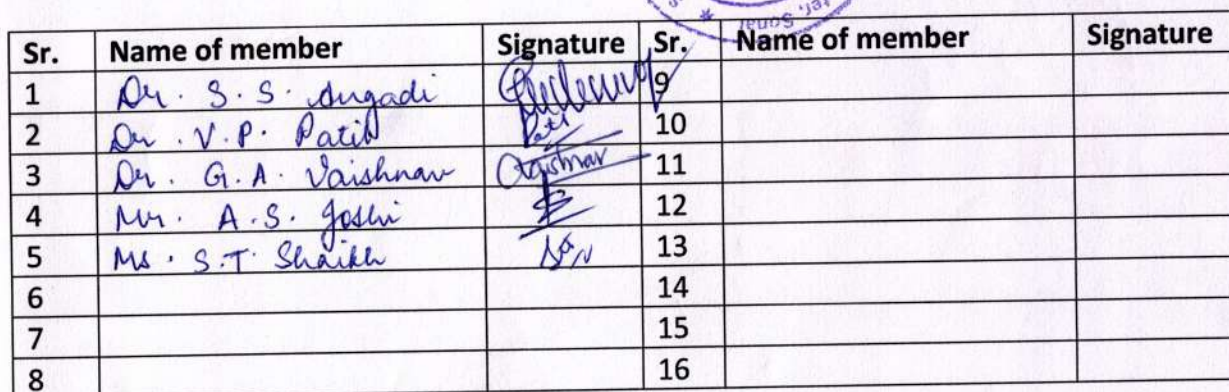 Sr. Name of member Signature Sr. Name of member Signature
1 Dr. S. S. Angadi 9
2 Dr. V. P. Patil Patil 10
3 Dr. G. A. Vaishnav Vaishnav 11
4 Mr. A. S. Joshi 12
5 Ms. S. T. Shaikh 13
6 14
7 15
8 16